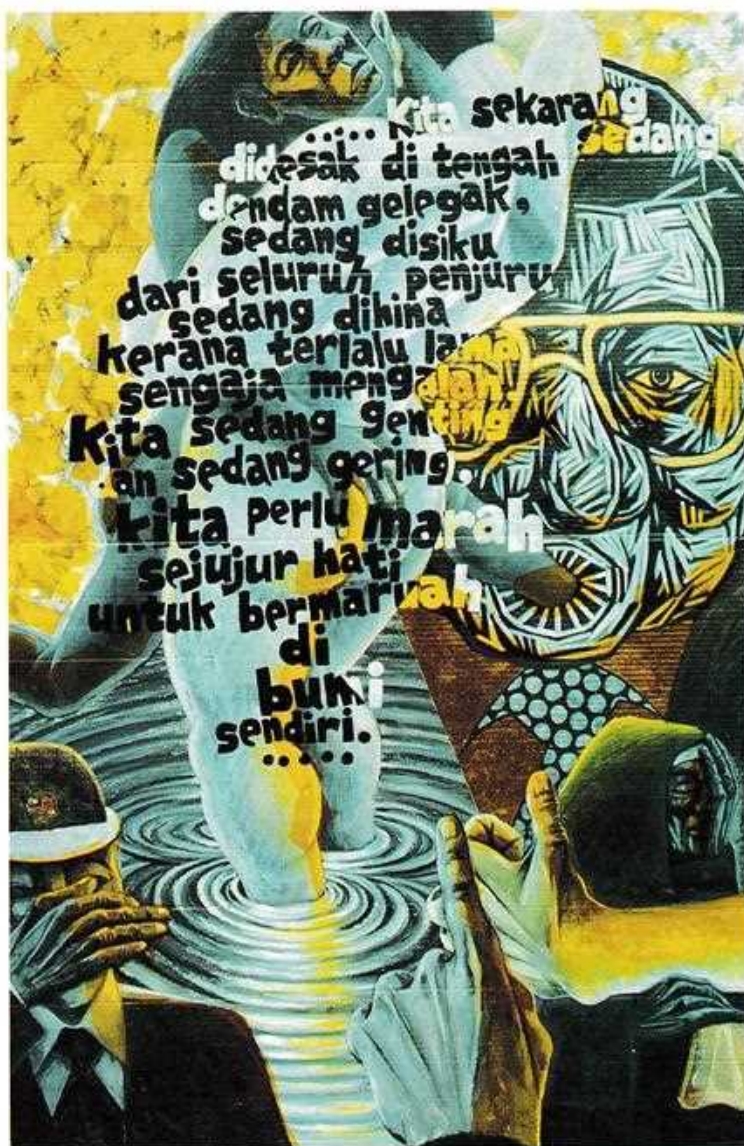 ..... Kita sekarang
sedang
didesak di tengah
dendam gelegak,
sedang disiku
dari seluruh penjuru
sedang dihina
kerana terlalu lama
sengaja mengalah.
Kita sedang genting
an sedang gering.
kita perlu marah
sejujur hati
untuk bermaruah
di
bumi
sendiri.
.....